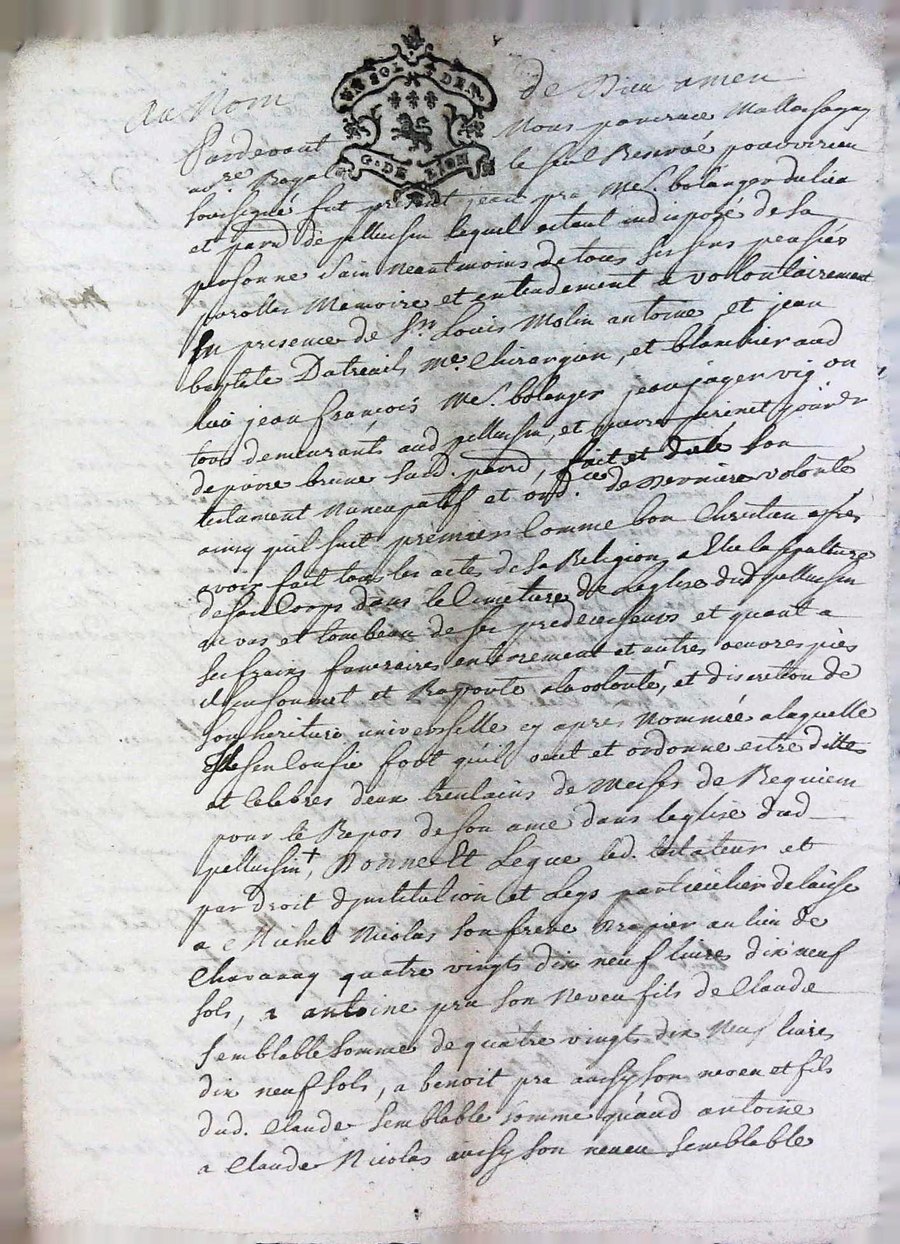 UN SOL 4 DEN.
G. DE LION
Au Nom de Dieu amen
Pardevant Nous
no.re Royal le seul Reservé
soussigné fut present jean pra Me. bolanger du lieu
et parr.e de pellussin lequel estant indisposé de sa
personne sain neantmoins de tous ses sens pensées
parolles Memoire et entendement a vollontairement
En presence de Sr. Louis Molin antoine, et jean
baptiste Dutreuil, Me. Chirurgien, et blanchier aud
lieu jean françois Me. bolanger jean jager vig.on
tous demeurants aud. pellussin, et
de pavre brune susd. parr.e, fait et dicté son
testament Nuncupatif et ord.ce de derniere volonté
ainsy quil suit premier Comme bon Chretien apres
avoir fait tous les actes de la Religion, a Elu la sepulture
de son Corps dans le Cimetiere de Leglise dud pellussin
au vas et tombeau de ses predecesseurs et quant a
ses frais funeraires enterrement et autres oeuvres pies
il sen soumet et Rapporte a la volonté, et discretion de
son heritiere universelle cy apres Nommée a laquelle
Il sen Confie fort quil veut et ordonne estre dittes
et celebres deux trentains de Messes de Requiem
pour le Repos de son ame dans leglise dud
pellussin, Donne Et Legue led. testateur et
par Droit dynstitution et Legs particulier delaisse
a Michel Nicolas son frere Drapier au lieu de
Chavanay quatre vingts dix neuf livres dix neuf
sols, a antoine pra son Neveu fils de Claude
semblable somme de quatre vingts dix Neuf livres
dix neuf sols, a benoit pra aussy son neveu et fils
dud. Claude semblable somme quaud antoine
a Claude Nicolas aussy son neveu semblable